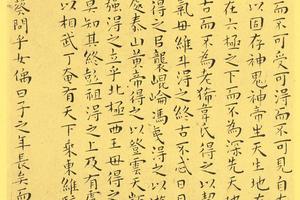 而不可受可得而不可見自本
以固存神鬼神帝生天生地在
在六極之下而不為深先天地
古而不為老狶韋氏得之以挈
氣母維斗得之終古不忒日月
得之以襲崑崙馮夷得之以
處泰山黃帝得之以登雲天顓
強得之立乎北極西王母得之
莫知其終彭祖得之上及有虞
以相武丁奄有天下乘東維騎
葵問乎女偊曰子之年長矣而